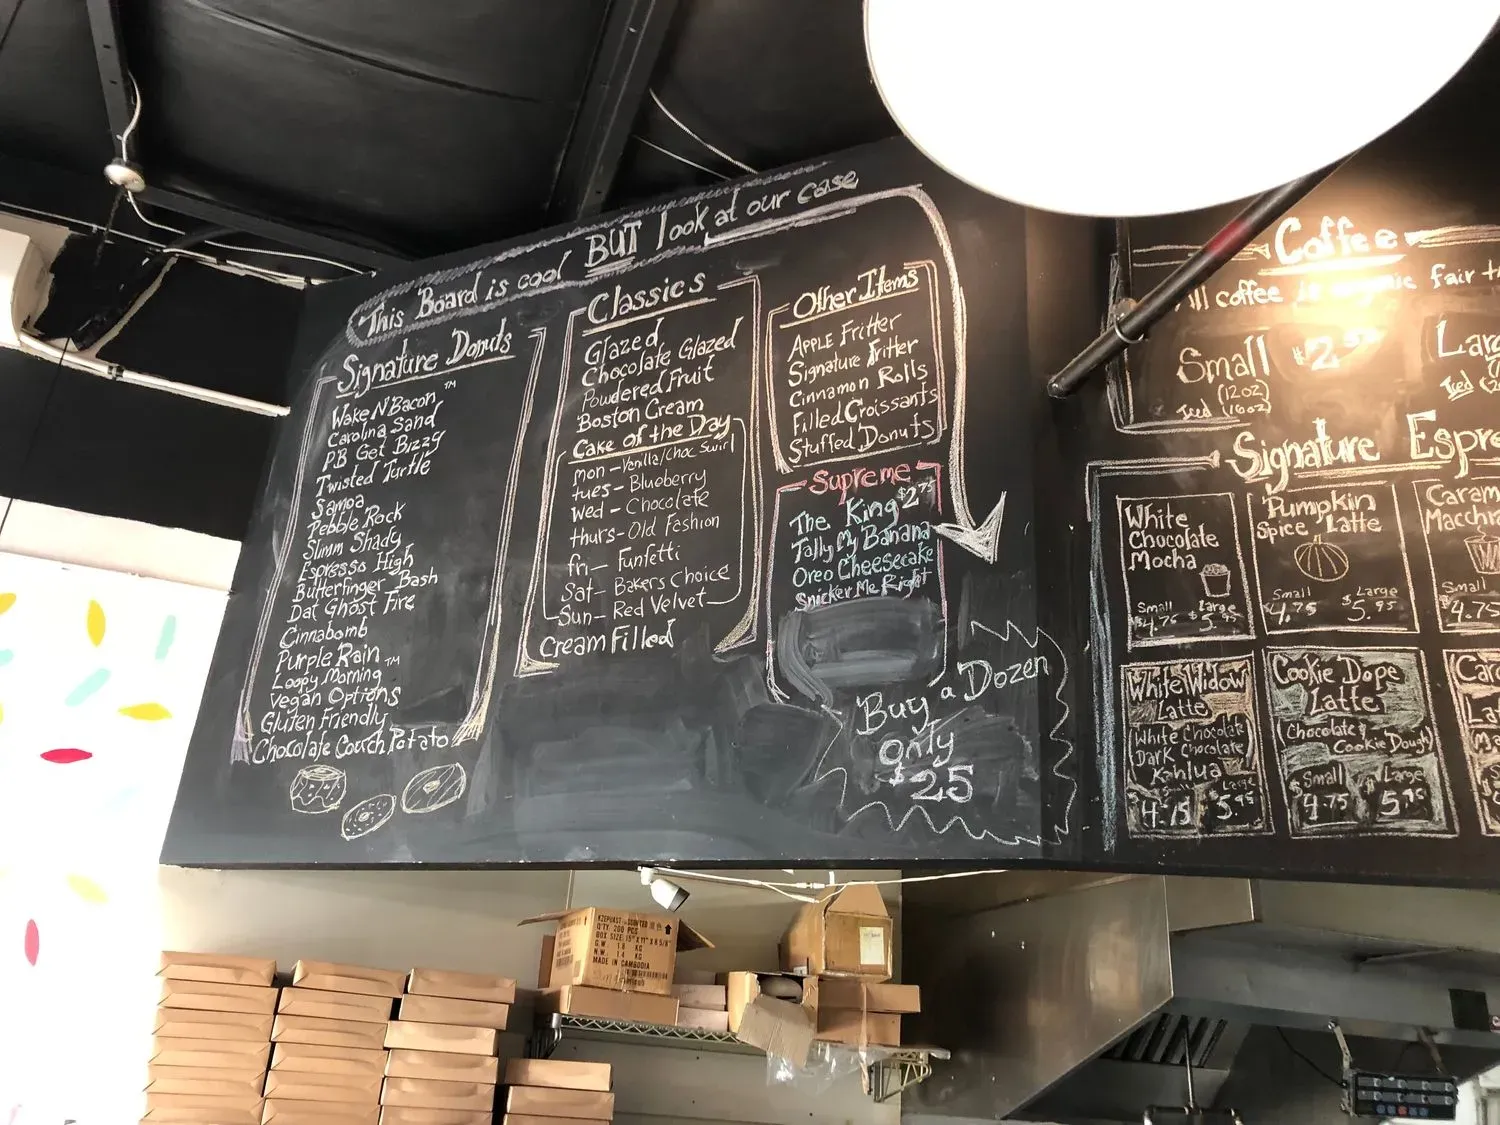 This Board is cool BUT look at our case
Signature Donuts
Wake N Bacon™
Carolina Sand
PB Get Bizzy
Twisted Turtle
Samoa
Pebble Rock
Slimm Shady
Espresso High
Butterfinger Bash
Dat Ghost Fire
Cinnabomb
Purple Rain™
Loopy Morning
Vegan Options
Gluten Friendly
Chocolate Couch Potato
Classics
Glazed
Chocolate Glazed
Powdered Fruit
Boston Cream
Cake of the Day
mon - Vanilla/Choc Swirl
tues - Blueberry
Wed - Chocolate
thurs - Old Fashion
fri - Funfetti
Sat - Bakers Choice
Sun - Red Velvet
Cream Filled
Other Items
Apple Fritter
Signature Fritter
Cinnamon Rolls
Filled Croissants
Stuffed Donuts
Supreme
The King $2.75
Tally My Banana
Oreo Cheesecake
Snicker Me Right
Buy a Dozen
only
$25
Coffee
coffee is organic fair
Small $2.50
(12oz)
Iced (16oz)
Iced
Signature
White
Chocolate
Mocha
Small Large
$4.75 $5.95
Pumpkin
Spice Latte
Small Large
$4.75 5.95
Small
$4.75
White Widow
Latte
(White Chocolate
Dark Chocolate
Kahlua)
4.75 $5.95
Cookie Dope
Latte
(Chocolate &
Cookie Dough)
$Small $Large
4.75 5.95
QTY. 200 PCS
BOX SIZE: 15"X11"X8 5/8"
G.W. 1.8 KG
N.W. 1.4 KG
MADE IN CAMBODIA